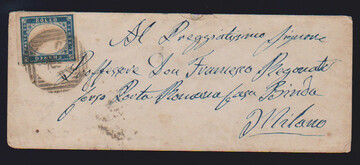 Al Preggiatissimo Signore
Professore Don Francesco
Corso Porta Romana Casa Binda
Milano